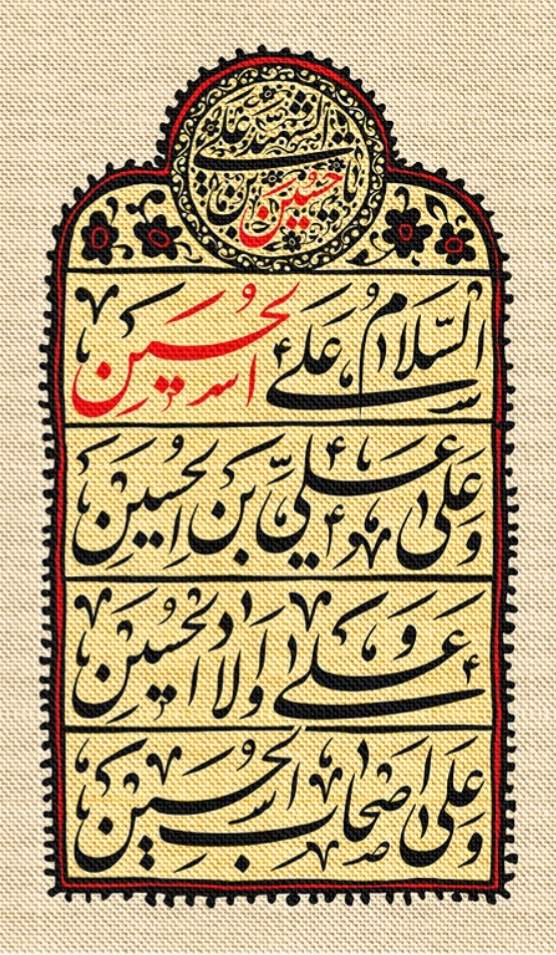 السلام عليك يا حسين بن علي الشهيد
السَّلامُ عَلَى الحُسَين
وَعَلى عَليِّ بنِ الحُسين
وَعَلى اَولادِ الحُسين
وَعَلى اَصحابِ الحُسَين